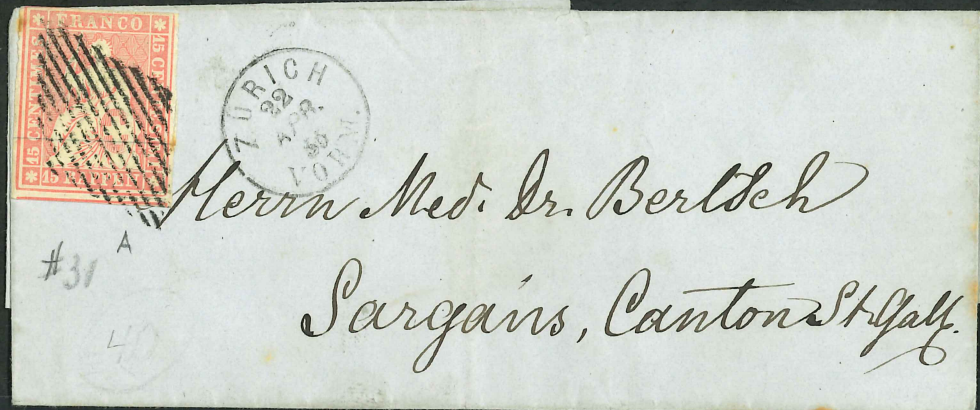 FRANCO
15 CENTIMES
15 RAPPEN
15 CE
ZÜRICH
22
APR.
VORM.
Herrn Med. Dr. Bertsch
Sargans, Canton St. Gall.
A
#31
40